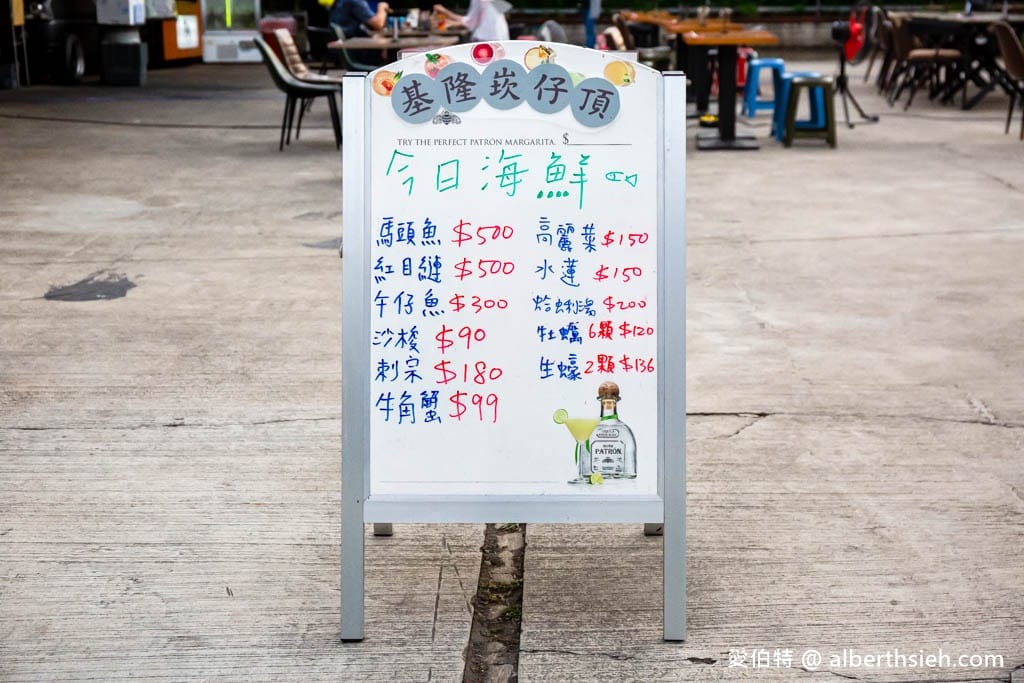 基隆崁仔頂
TRY THE PERFECT PATRÓN MARGARITA. $
今日海鮮
馬頭魚 $500
紅目鰱 $500
午仔魚 $300
沙梭 $90
刺宗 $180
牛角蟹 $99
高麗菜 $150
水蓮 $150
蛤蜊湯 $200
牡蠣 6顆 $120
生蠔 2顆 $136
PATRÓN
愛伯特 @ alberthsieh.com